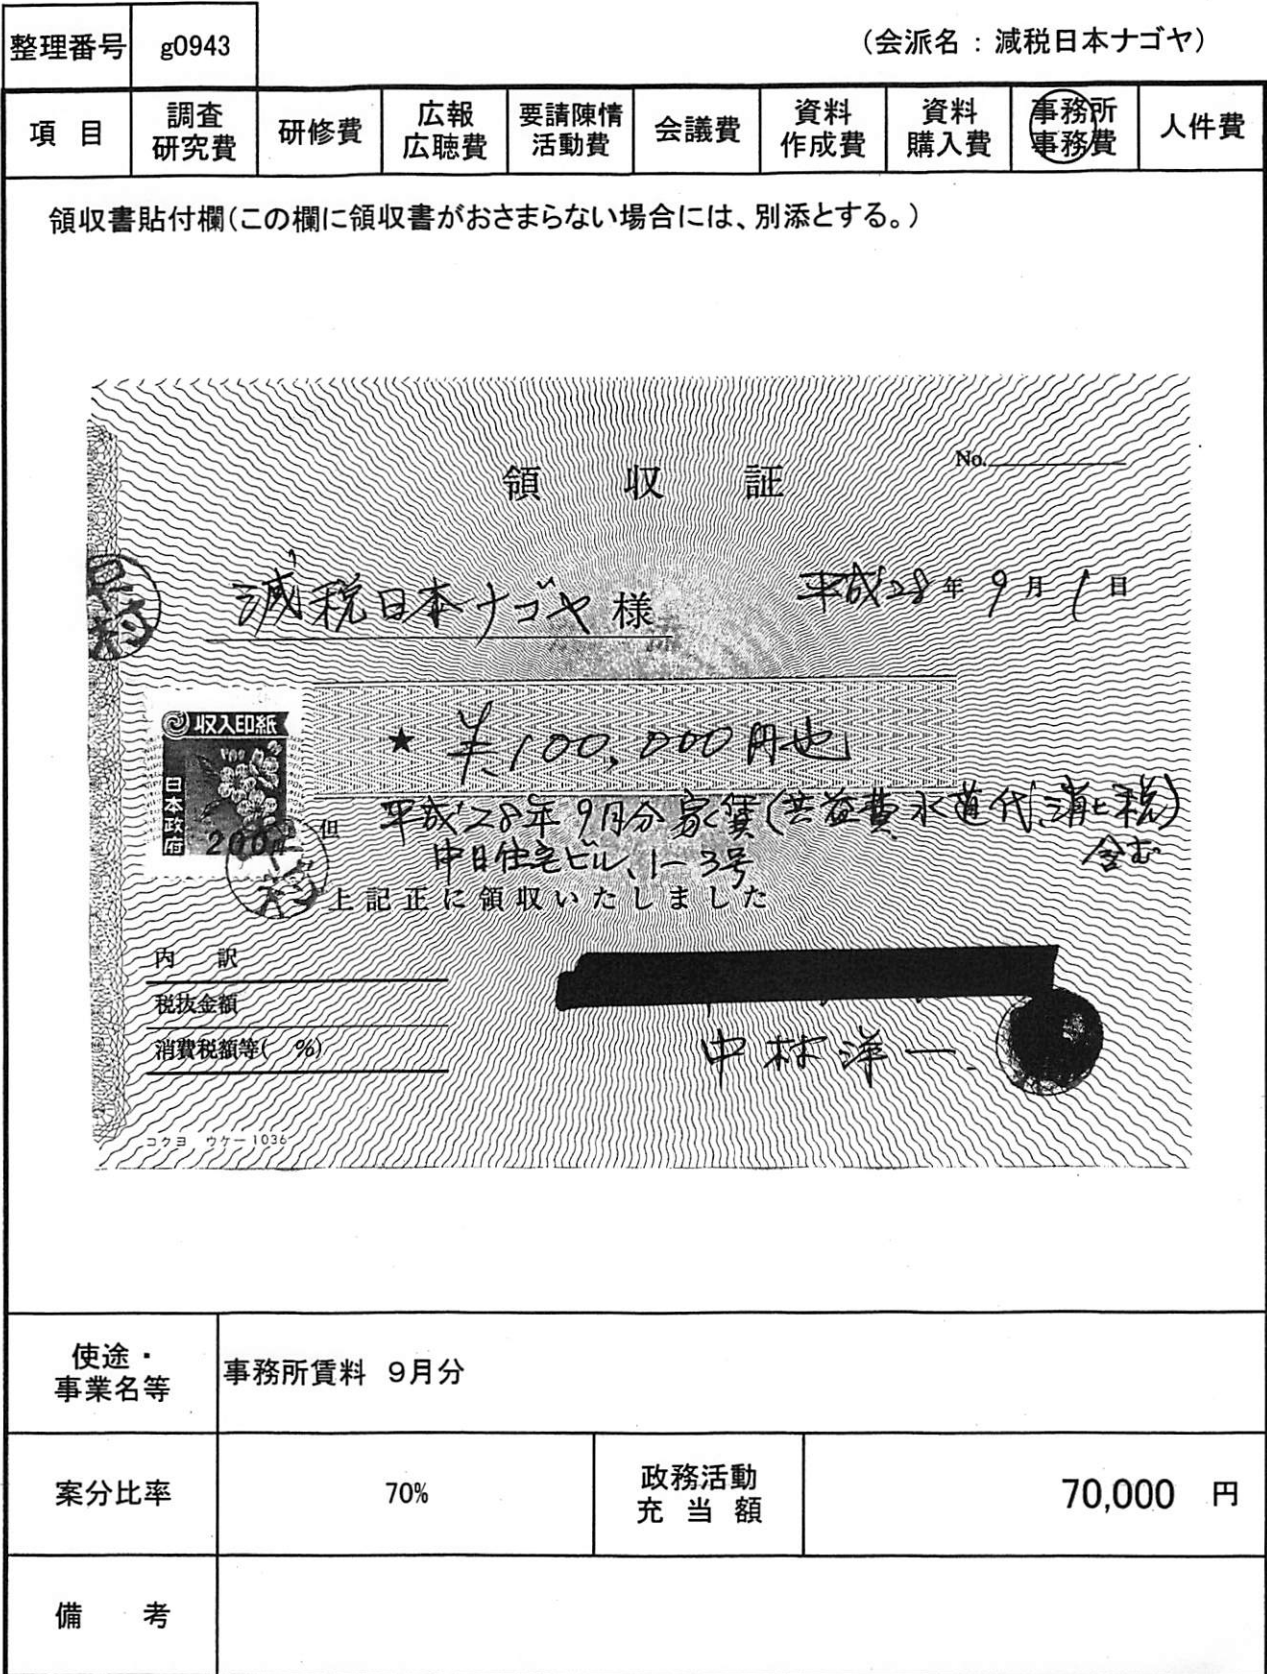 整理番号 g0943
(会派名：減税日本ナゴヤ)
項目 調査研究費 研修費 広報広聴費 要請陳情活動費 会議費 資料作成費 資料購入費 事務所事務費 人件費
領収書貼付欄(この欄に領収書がおさまらない場合には、別添とする。)
No.
領収証
減税日本ナゴヤ様 平成28年9月1日
収入印紙
日本政府
200円
★ ¥100,000円也
但 平成28年9月分家賃(共益費水道代、消ヒ税)
含む
中日住宅ビル、1-3号
上記正に領収いたしました
内訳
税抜金額
消費税額等( %)
中村洋一
コクヨ ウケ-1036
使途・事業名等 事務所賃料 9月分
案分比率 70% 政務活動充当額 70,000 円
備考